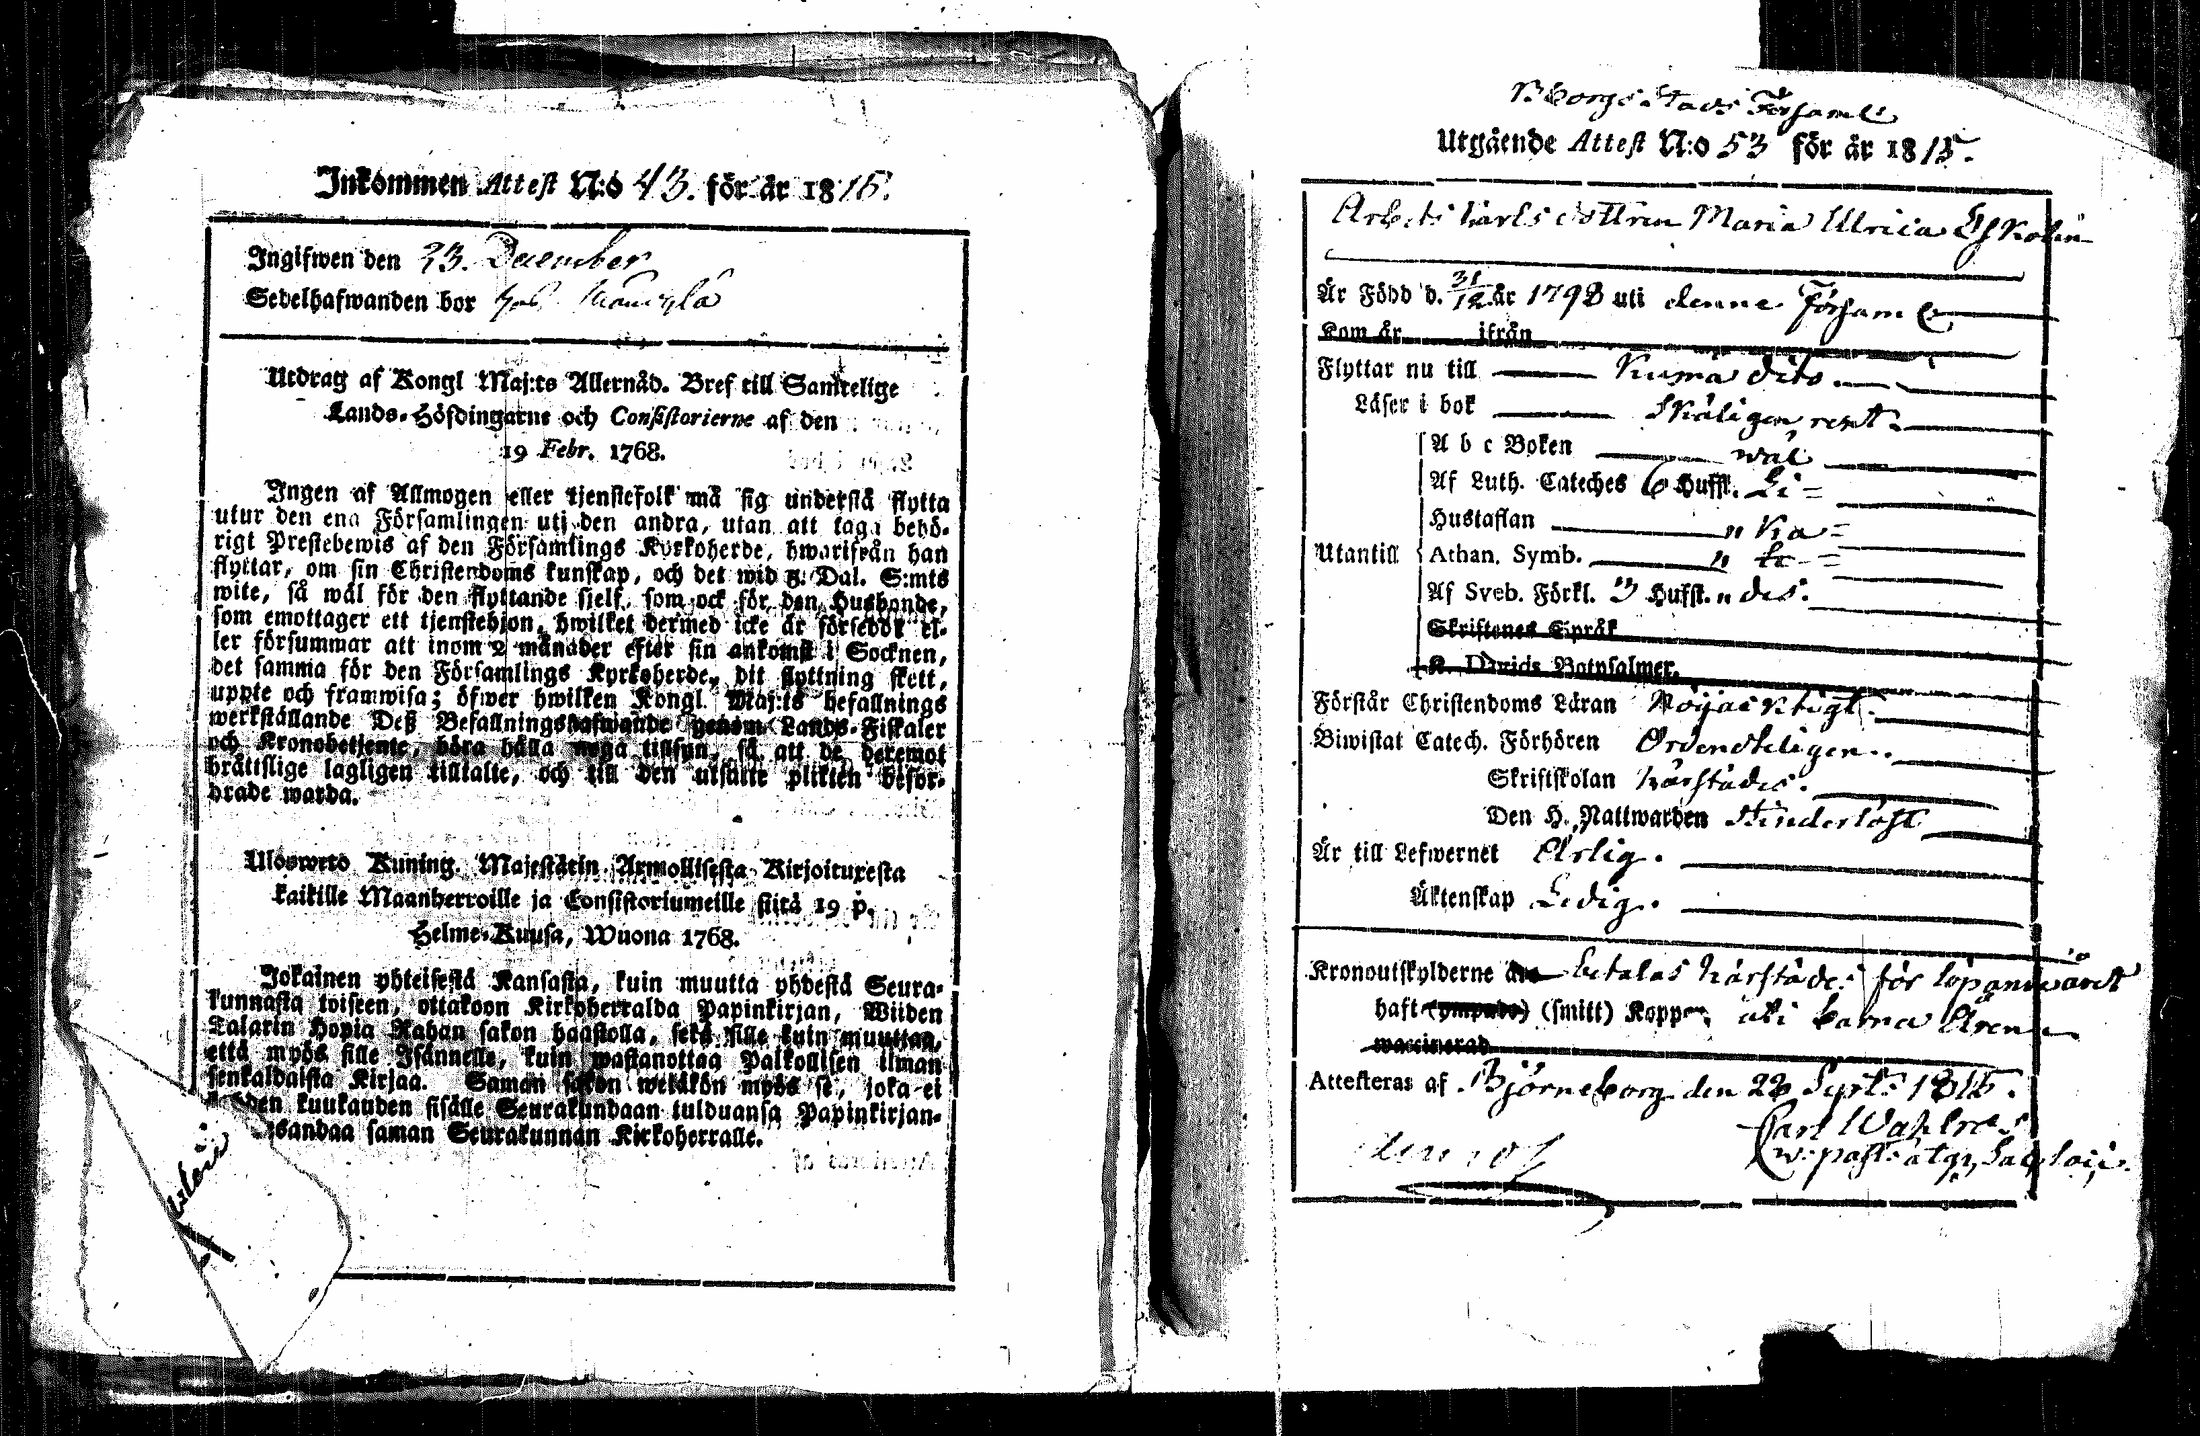 Inkommen Attest N:o 43. för år 1815.
Ingifwen den 23. December
Sedelhafwanden bor
Utdrag af Kongl Maj:ts Allernåd. Bref till Samtelige
Lands-Höfdingarne och Consistorierne af den
19 Febr. 1768.
Ingen af Allmogen eller tjenstefolk må sig understå flytta
utur den ena Församlingen uti den andra, utan att taga behö-
rigt Prestebewis af den Församlings Kyrkoherde, hwarifrån han
flyttar, om sin Christendoms kunskap, och det wid 5. Dal. S:mts
wite, så wäl för den flyttande sjelf, som ock för den Husbonde,
som emottager ett tjenstehjon, hwilket dermed icke är förseddt el-
ler försummar att inom 2 månader efter sin ankomst i Socknen,
det samma för den Församlings Kyrkoherde, dit flyttning skett,
uppte och framwisa; öfwer hwilken Kongl. Maj:ts befallnings
werkställande Deß Befallningshafwande genom Lands-Fiskaler
och Kronobetjente, böra hålla noga tillsyn, så att de deremot
bråttslige lagligen tilltalte, och till den utsatte plikten befor-
drade warda.
Ulosweto Kuning. Majestätin Armollisesta Kirjoituxesta
kaikille Maanherroille ja Consistoriumeille siitä 19 p.
Helme-Kuusa, Wuona 1768.
Jokainen yhteisestä Kansasta, kuin muutta yhdestä Seura-
kunnasta toiseen, ottakoon Kirkoherralda Papinkirjan, Wiiden
Talarin Hopia Rahan sakon haastolla, sekä sille kuin muuttaa,
että myös sille Isännelle, kuin wastanottaa Palkollisen ilman
senkaldaista Kirjaa. Saman sakon wetäkön myös se, joka ei
kahden kuukauden sisälle Seurakundaan tulduansa Papinkirjan-
sandaa saman Seurakunnan Kirkoherralle.
Bborgs Stads Församl:
Utgående Attest N:o 53 för år 1815.
Arbets karls dottren Maria Ulrica Eskolin
Är Född d. 31/12 år 1798 uti denne Församl
Kom år ifrån
Flyttar nu till Kumo dito.
Läser i bok Skäligen rent.
A b c Boken wäl
Af Luth. Cateches 6 Hufst. Li=
Hustaflan " ka=
Athan. Symb. " le=
Utantill
Af Sveb. Förkl. 3 Hufst. " des.
Skriftenes Språk
K. Davids Botpsalmer.
Förstår Christendoms Läran Nöjaktigt.
Biwistat Catech. Förhören Ordenteligen.
Skriftskolan härstädes.
Den H. Nattwarden Hinderlöst
Är till Lefwernet Ärlig.
Äktenskap Ledig.
Kronoutskylderne äro betalas härstädes för löpande året
haft (ympade) (smitt) Koppor, uti barna Åren
waccinerad
Attesteras af Björneborg den 28 Sept: 1815.
Carl Wahlros